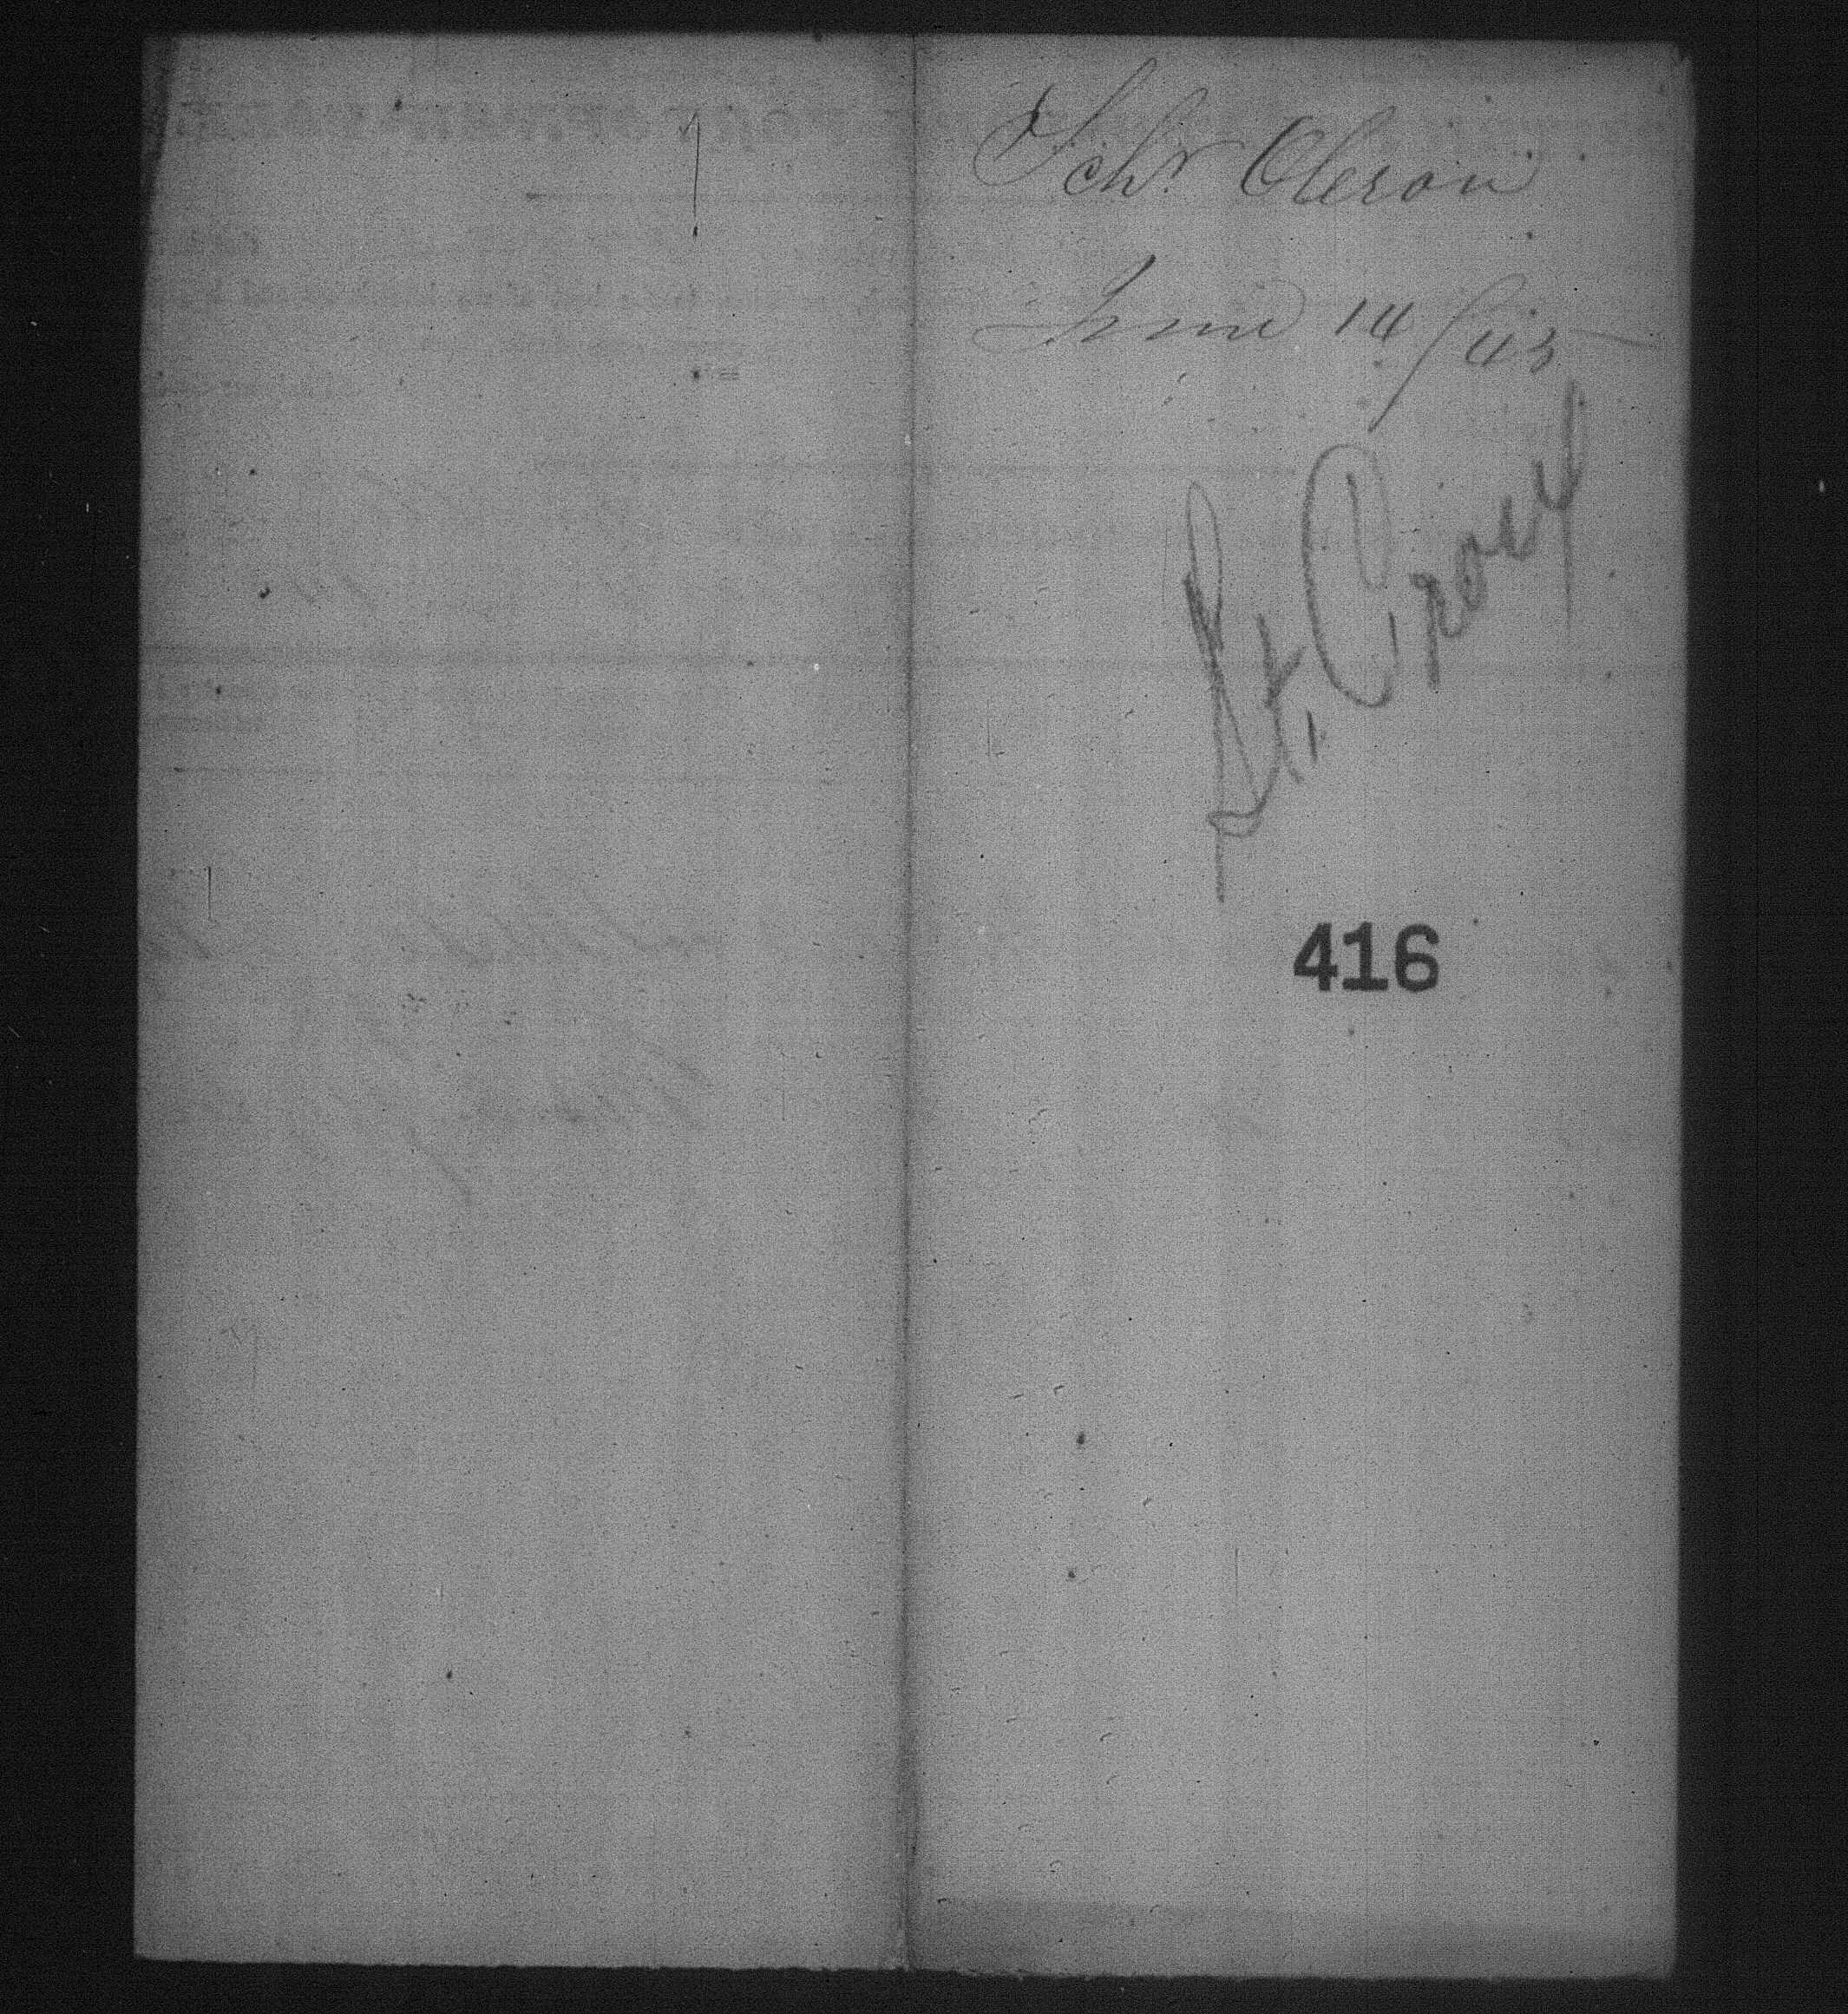 Schr Oleron
June 14/45
St. Croix
416